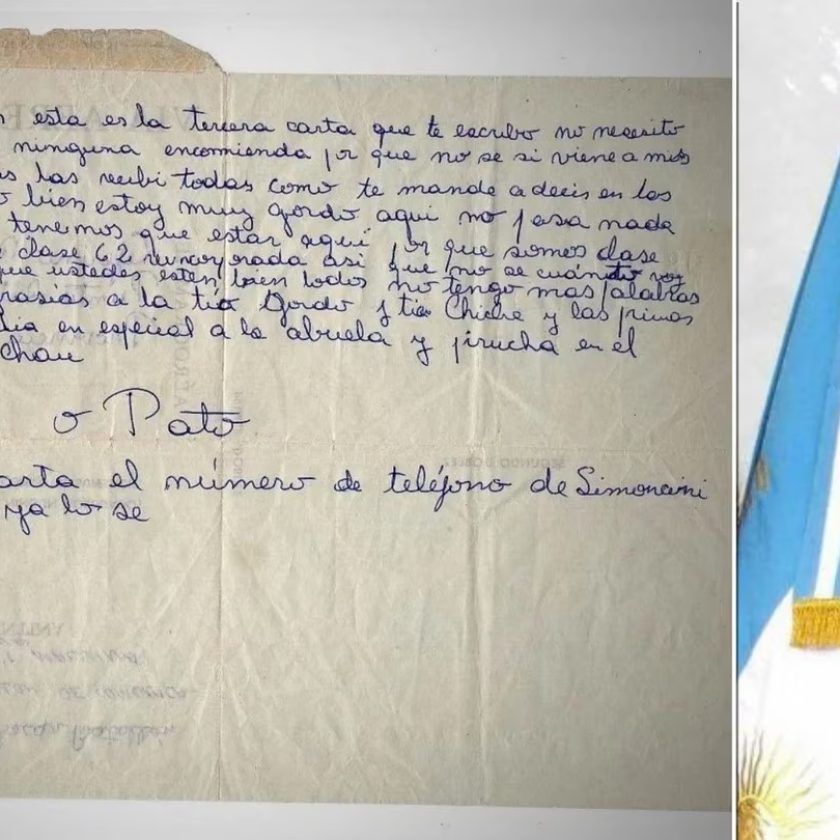 esta es la tercera carta que te escribo no necesito
ninguna encomienda por que no se si viene a mis
las recibi todas como te mande a decir en las
bien estoy muy gordo aqui no pasa nada
tenemos que estar aqui por que somos clase
clase 62 reincorporada asi que no se cuándo voy
que ustedes esten bien todos no tengo mas palabras
rasias a la tia Gordo y tia Chiche y las primas
lia en especial a la abuela y pirucha en el
chau
o Pato
arta el número de teléfono de Simoncini
ya lo se